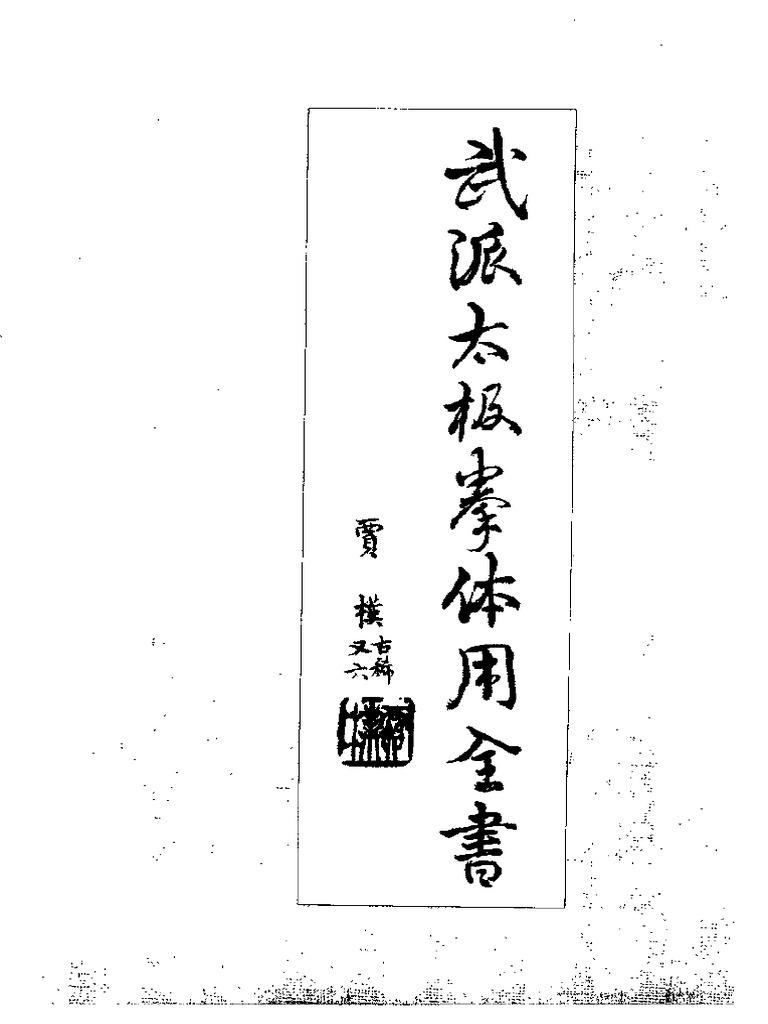 武派太极拳体用全書
賈樸
古稀
又六